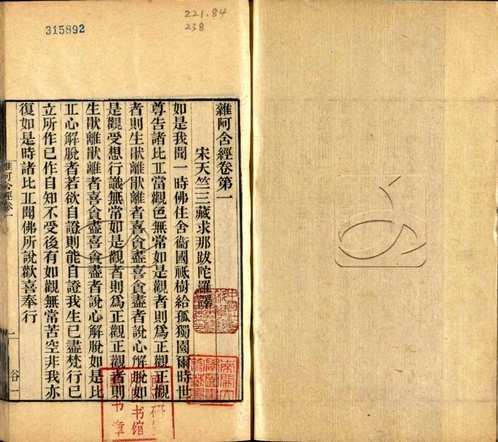 315892
221.84
238
雜阿含經卷第一
宋天竺三藏求那跋陀羅譯
如是我聞一時佛住舍衛國祗樹給孤獨園爾時世
尊告諸比丘當觀色無常如是觀者則爲正觀正觀
者則生猒離猒離者喜貪盡喜貪盡者說心解脫如
是觀受想行識無常如是觀者則爲正觀正觀者則
生猒離猒離者喜貪盡喜貪盡者說心解脫如是比
丘心解脫者若欲自證則能自證我生已盡梵行已
立所作已作自知不受後有如觀無常苦空非我亦
復如是時諸比丘聞佛所說歡喜奉行
雜阿含經卷一
一
谷一